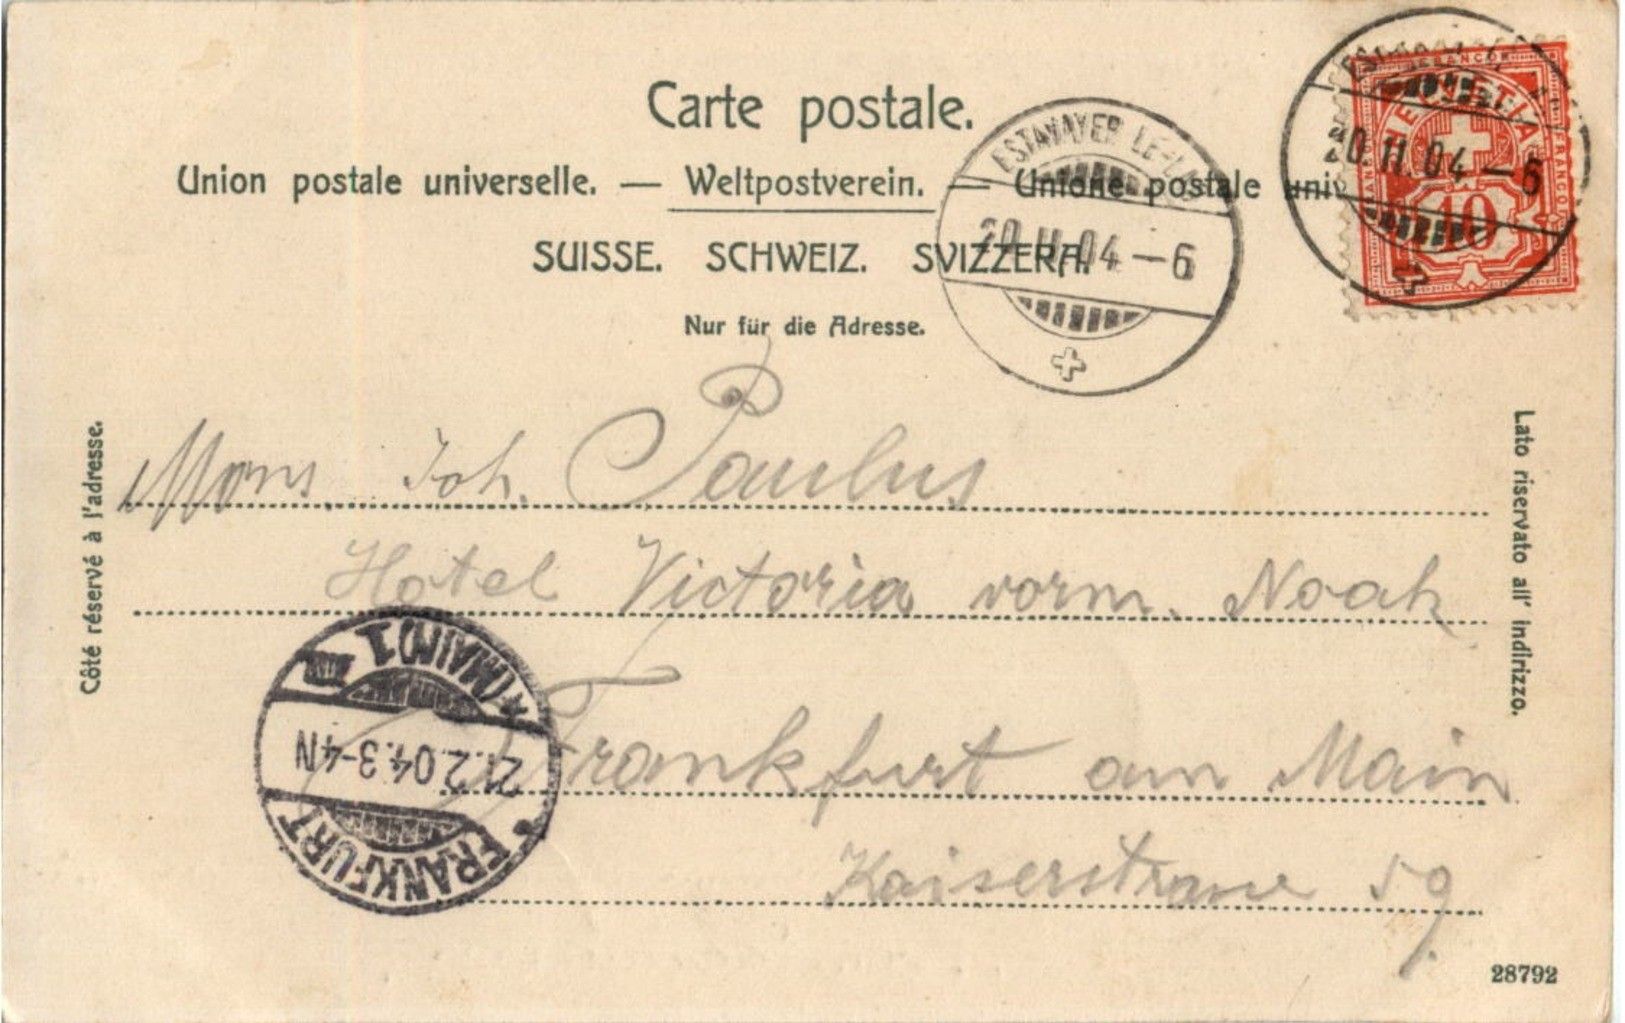 Carte postale.
Union postale universelle. — Weltpostverein. — Unione postale univ
SUISSE. SCHWEIZ. SVIZZERA.
Nur für die Adresse.
ESTAVAYER LE-LAC
20.II.04—6
20.II.04—6
HELVETIA
FRANCO
FRANCO
FRANCO
10
Côté réservé à l'adresse.
Lato riservato all' indirizzo.
Mons Joh. Paulus
Hotel Victoria vorm. Noak
Frankfurt am Main
Kaiserstrasse 59.
* FRANKFURT * (MAIN) 1
21.2.04.3-4N
28792